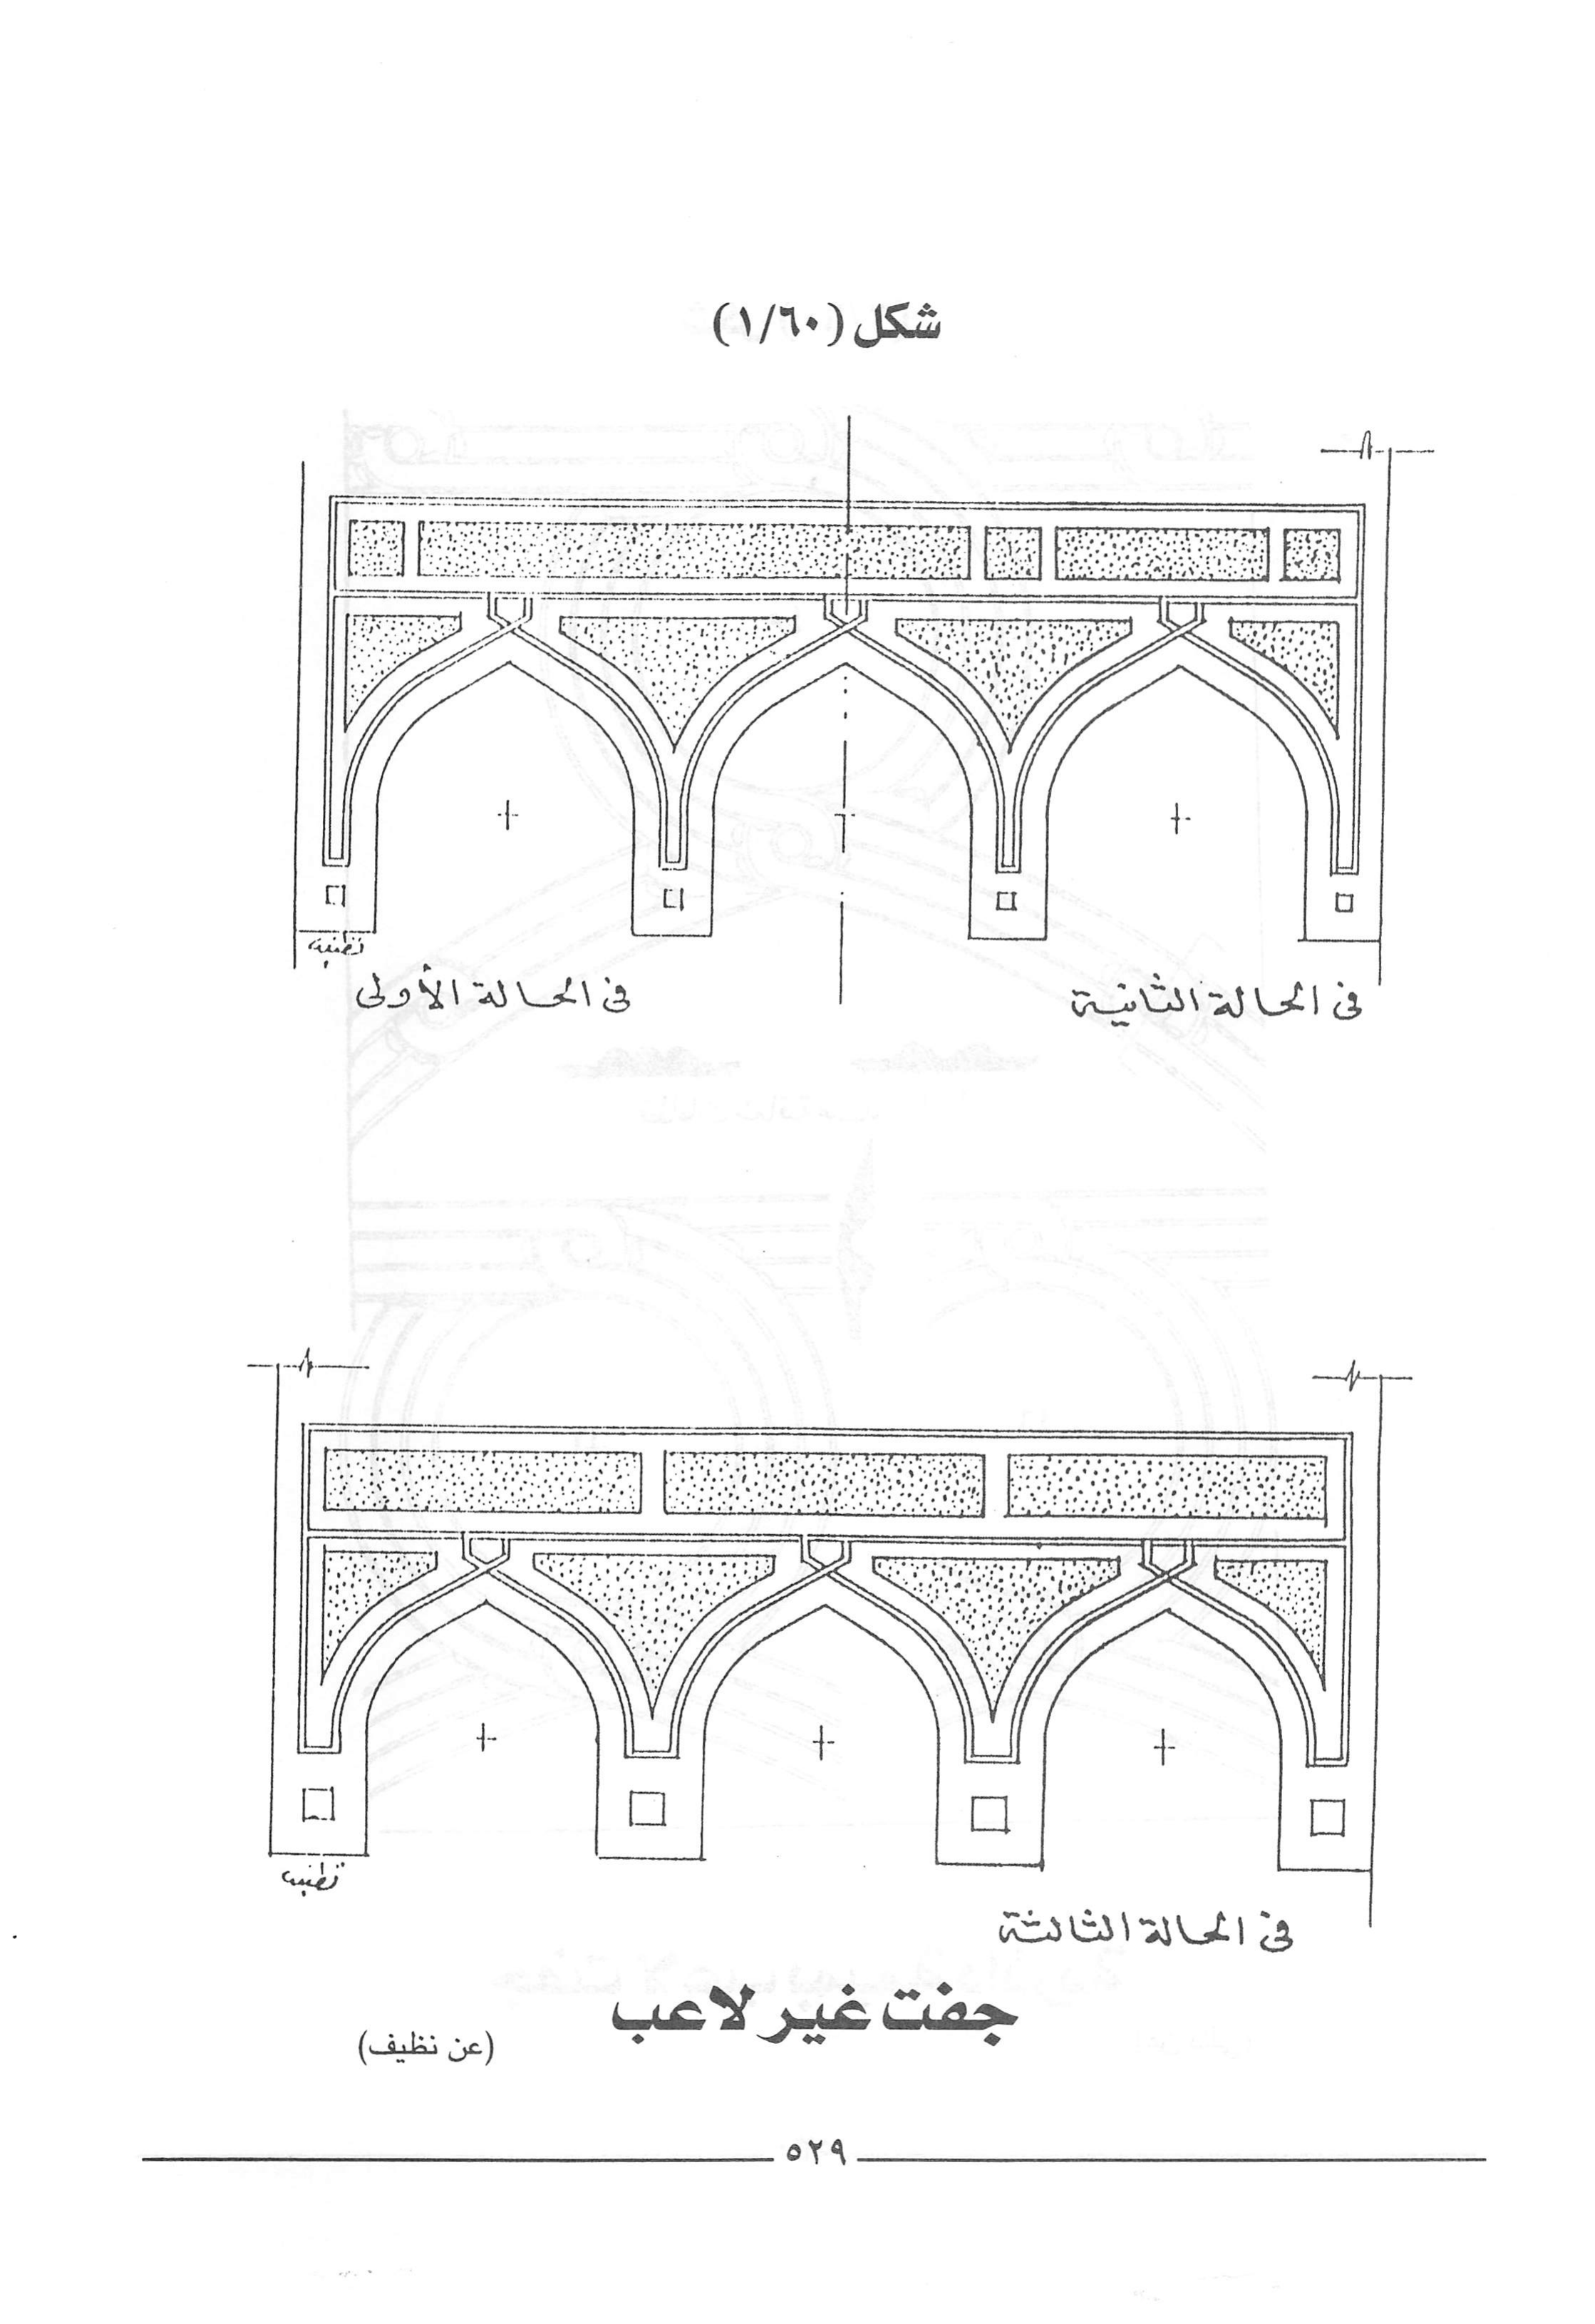 شكل (١/٦٠)
تطنيبه
في الحالة الثانية
في الحالة الأولى
تطنيبه
في الحالة الثالثة
جفت غير لاعب
(عن نظيف)
٥٢٩